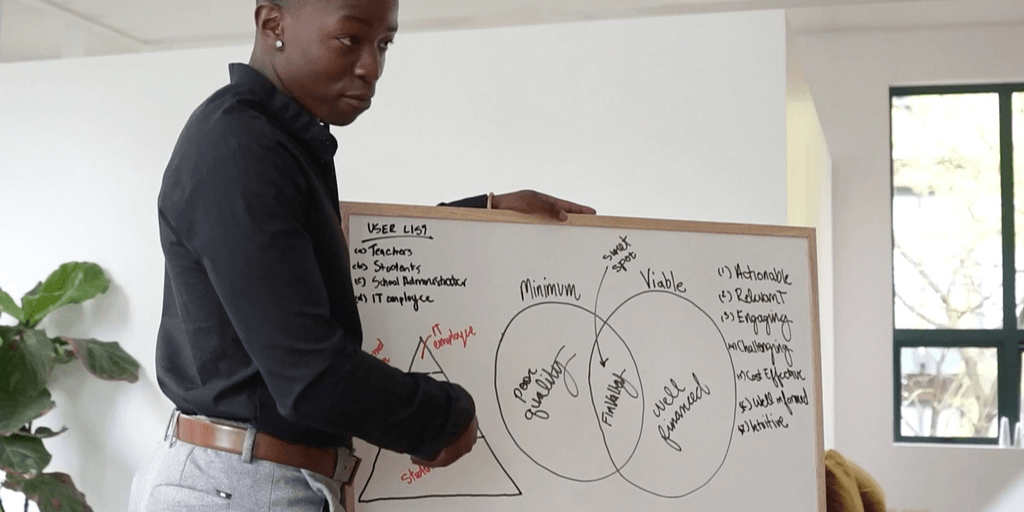 USER LIST
(a) Teachers
(b) Stodents
(c) School Administrator
(d) IT employee
IT
employee
Minimum
sweet
spot
Viable
Poor
quality
well
financed
(1) Actionable
(2) Relevant
(3) Engaging
Challenging
Cost Effective
Well informed
Intuitive